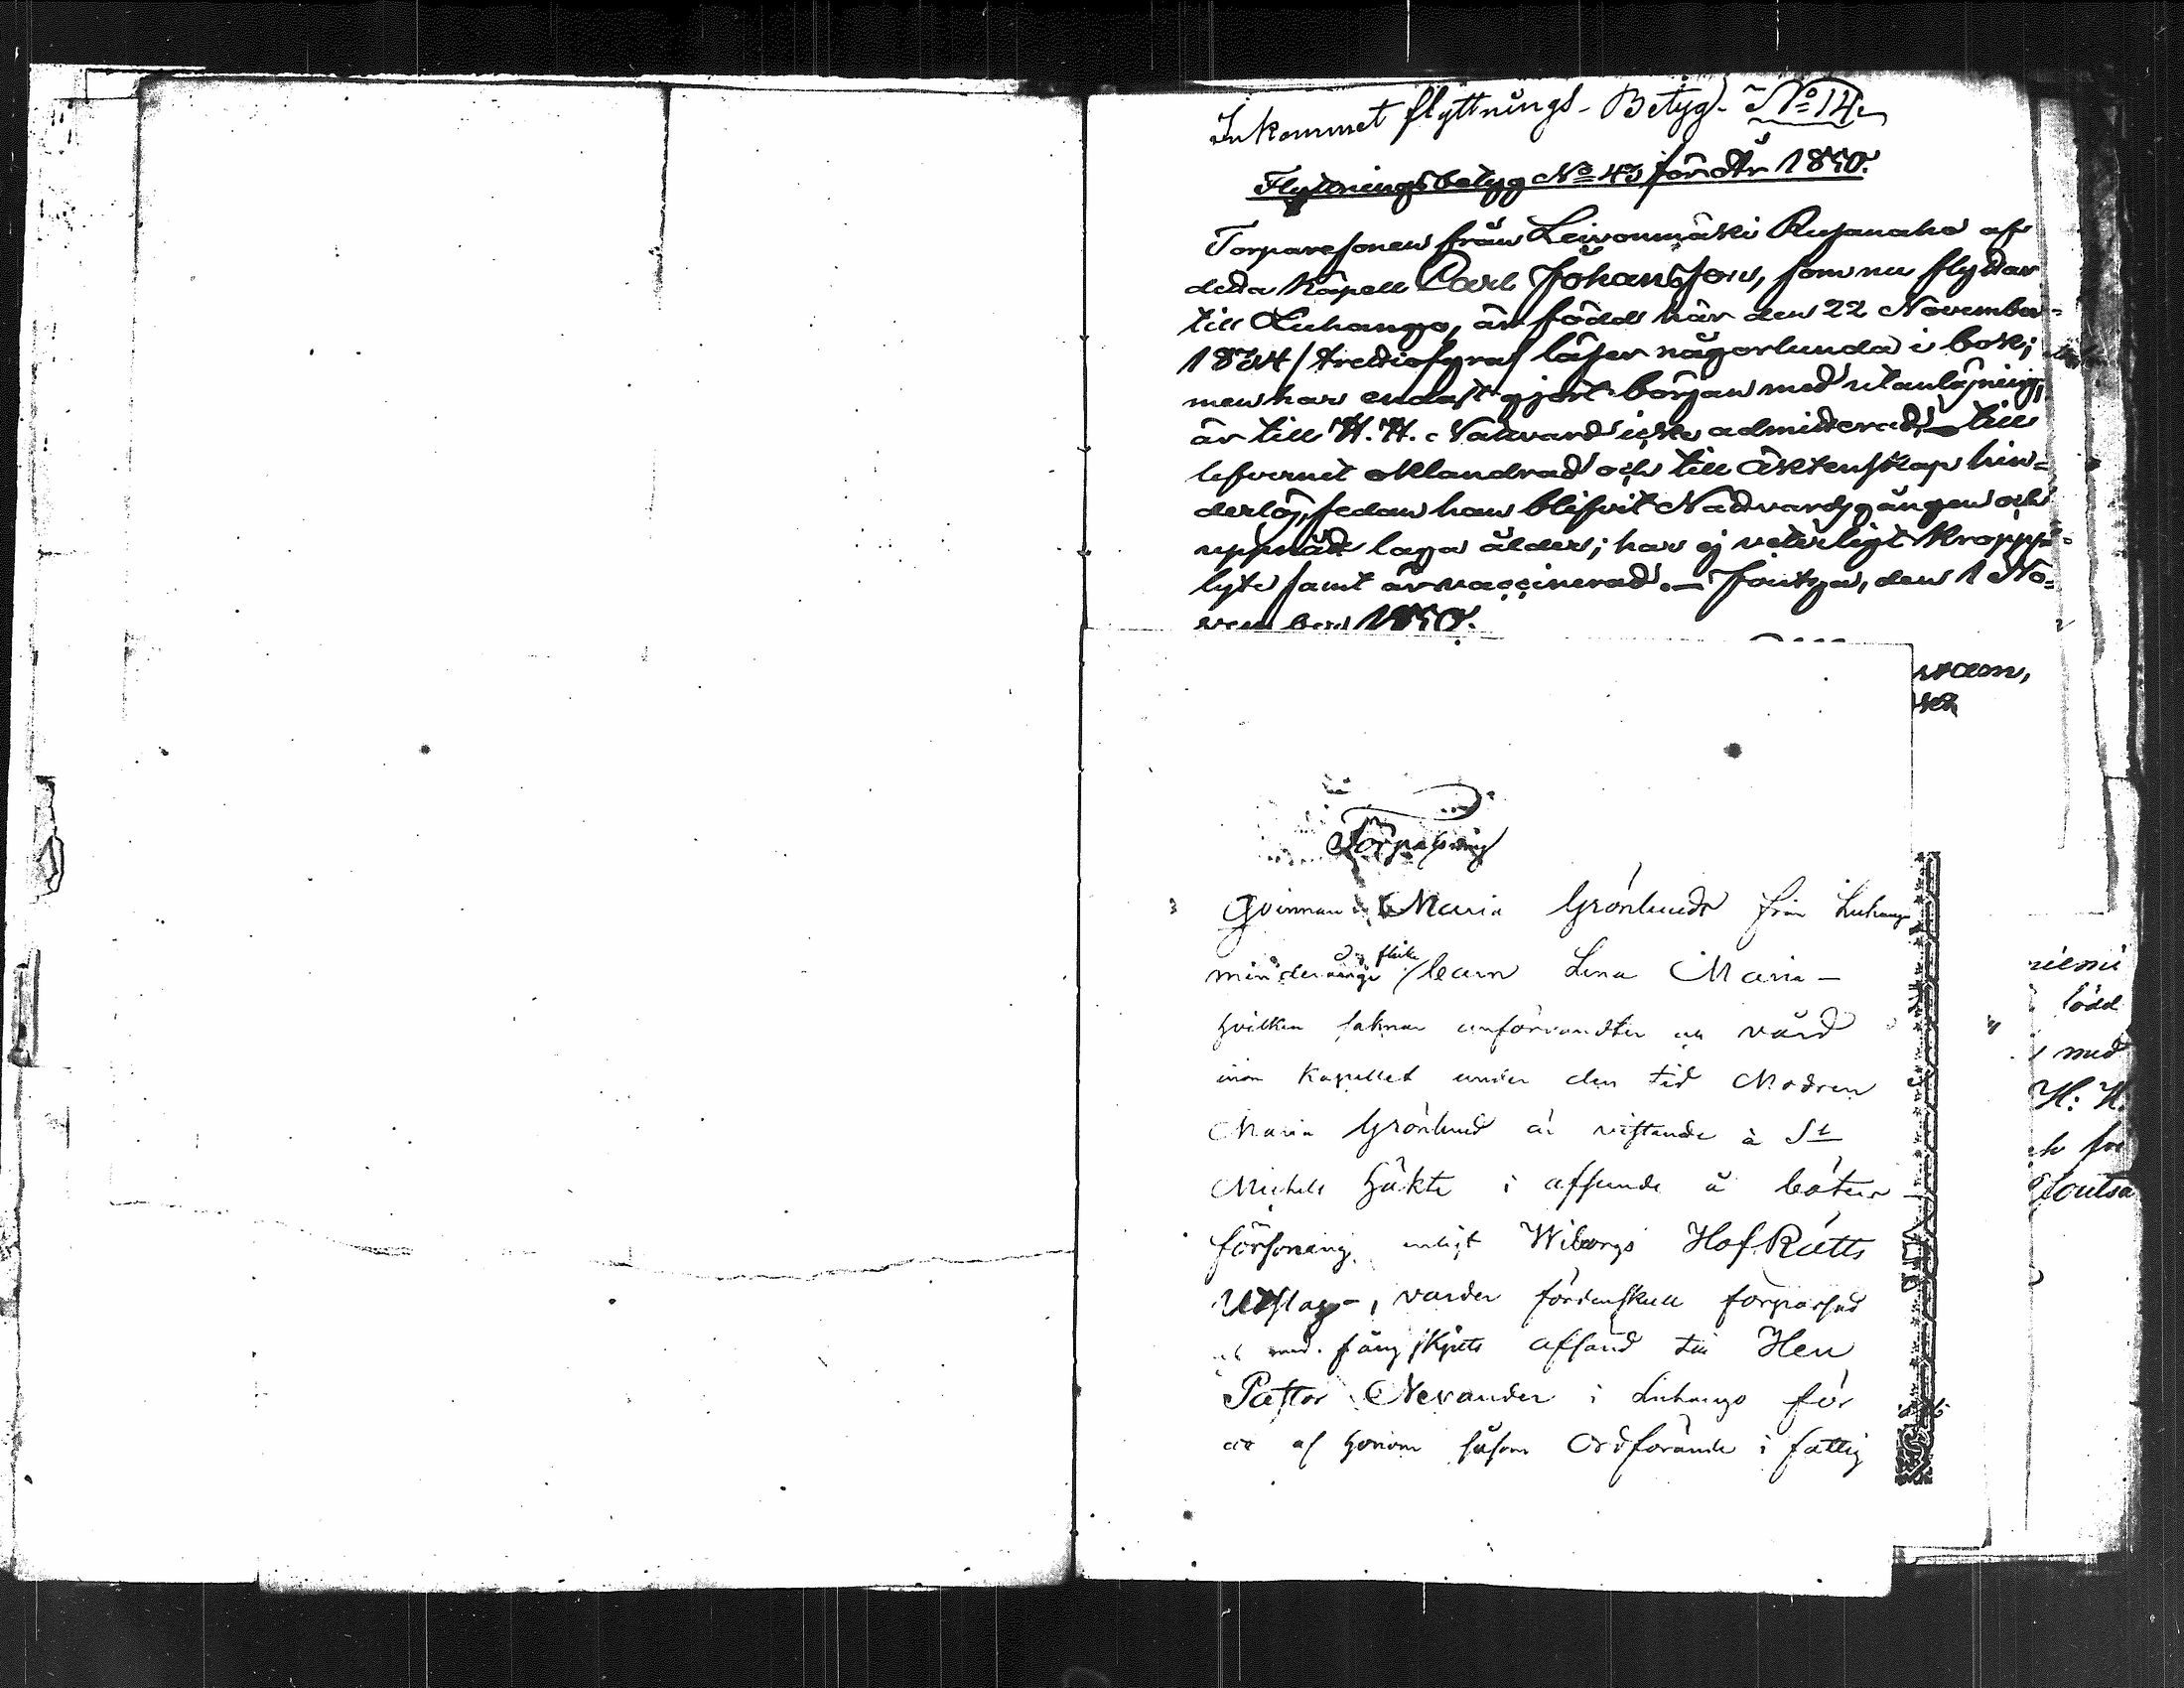 Inkommet flyttnings-Betyg. No 14.
Flyttningsbetyg No 43 för År 1850.
Torparesonen från Leivonmäki Rusanaho af
detta Kapell Carl Johansson, som nu flyttar
till Luhango, är född här den 22 November
1834 /trettiofyra/ läser någorlunda i bok;
men har endast gjort början med utanläsning;
är till H. H. Nattvard icke admitterad, till
lefvernet oklandrad och till äktenskap hin=
derlös, sedan han blifvit Nattvardsgången och
uppnått laga ålder; har ej veterligt kropps=
lyte samt är vaccinerad. — Joutsa, den 1 No=
vember 1850.
Förpassning
Qvinnan Maria Grönlunds från Luhango
minderåriga flicke barn Lena Maria —
hvilken saknar anförvandter och vård
inom Kapellet under den tid Modren
Maria Grönlund är vistande à St
Michels häkte i afseende å böters
försoning enligt Wiborgs HofRätts
Utslag -, varder fördenskull förpassad
och med fångskjuts afsänd till Herr
Pastor Nevander i Luhango för
att af honom såsom Ordförande i fattig
niemi
född
med
H. H.
för
Joutsa